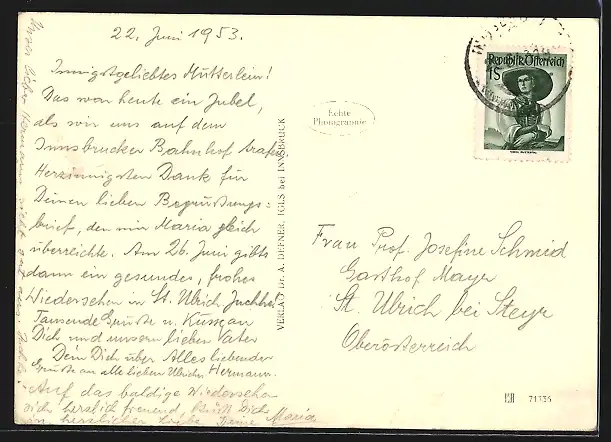 22. Juni 1953.
Innigstgeliebtes Mütterlein!
Das war heute ein Jubel,
als wir uns auf dem
Innsbrucker Bahnhof trafen
Herzinnigsten Dank für
Deinen lieben Begrüßungs=
brief, den mir Maria gleich
überreichte. Am 26. Juni gibts
dann ein gesundes, frohes
Wiedersehen in St. Ulrich Juchhe!
Tausende Grüße u. Küsse an
Dich und unsern lieben Vater
Dein Dich über Alles liebender
Hermann.
Grüße an alle lieben Ulricher
Auf das baldige Wiedersehen
sich herzlich freuend, küßt Dich
in herzlicher Liebe Deine Maria
Echte
Photographie
VERLAG DR. A. DEFNER, IGLS bei INNSBRUCK
Republik Österreich
1S
Frau Prof. Josefine Schmid
Gasthof Mayr
St. Ulrich bei Steyr
Oberösterreich
71336